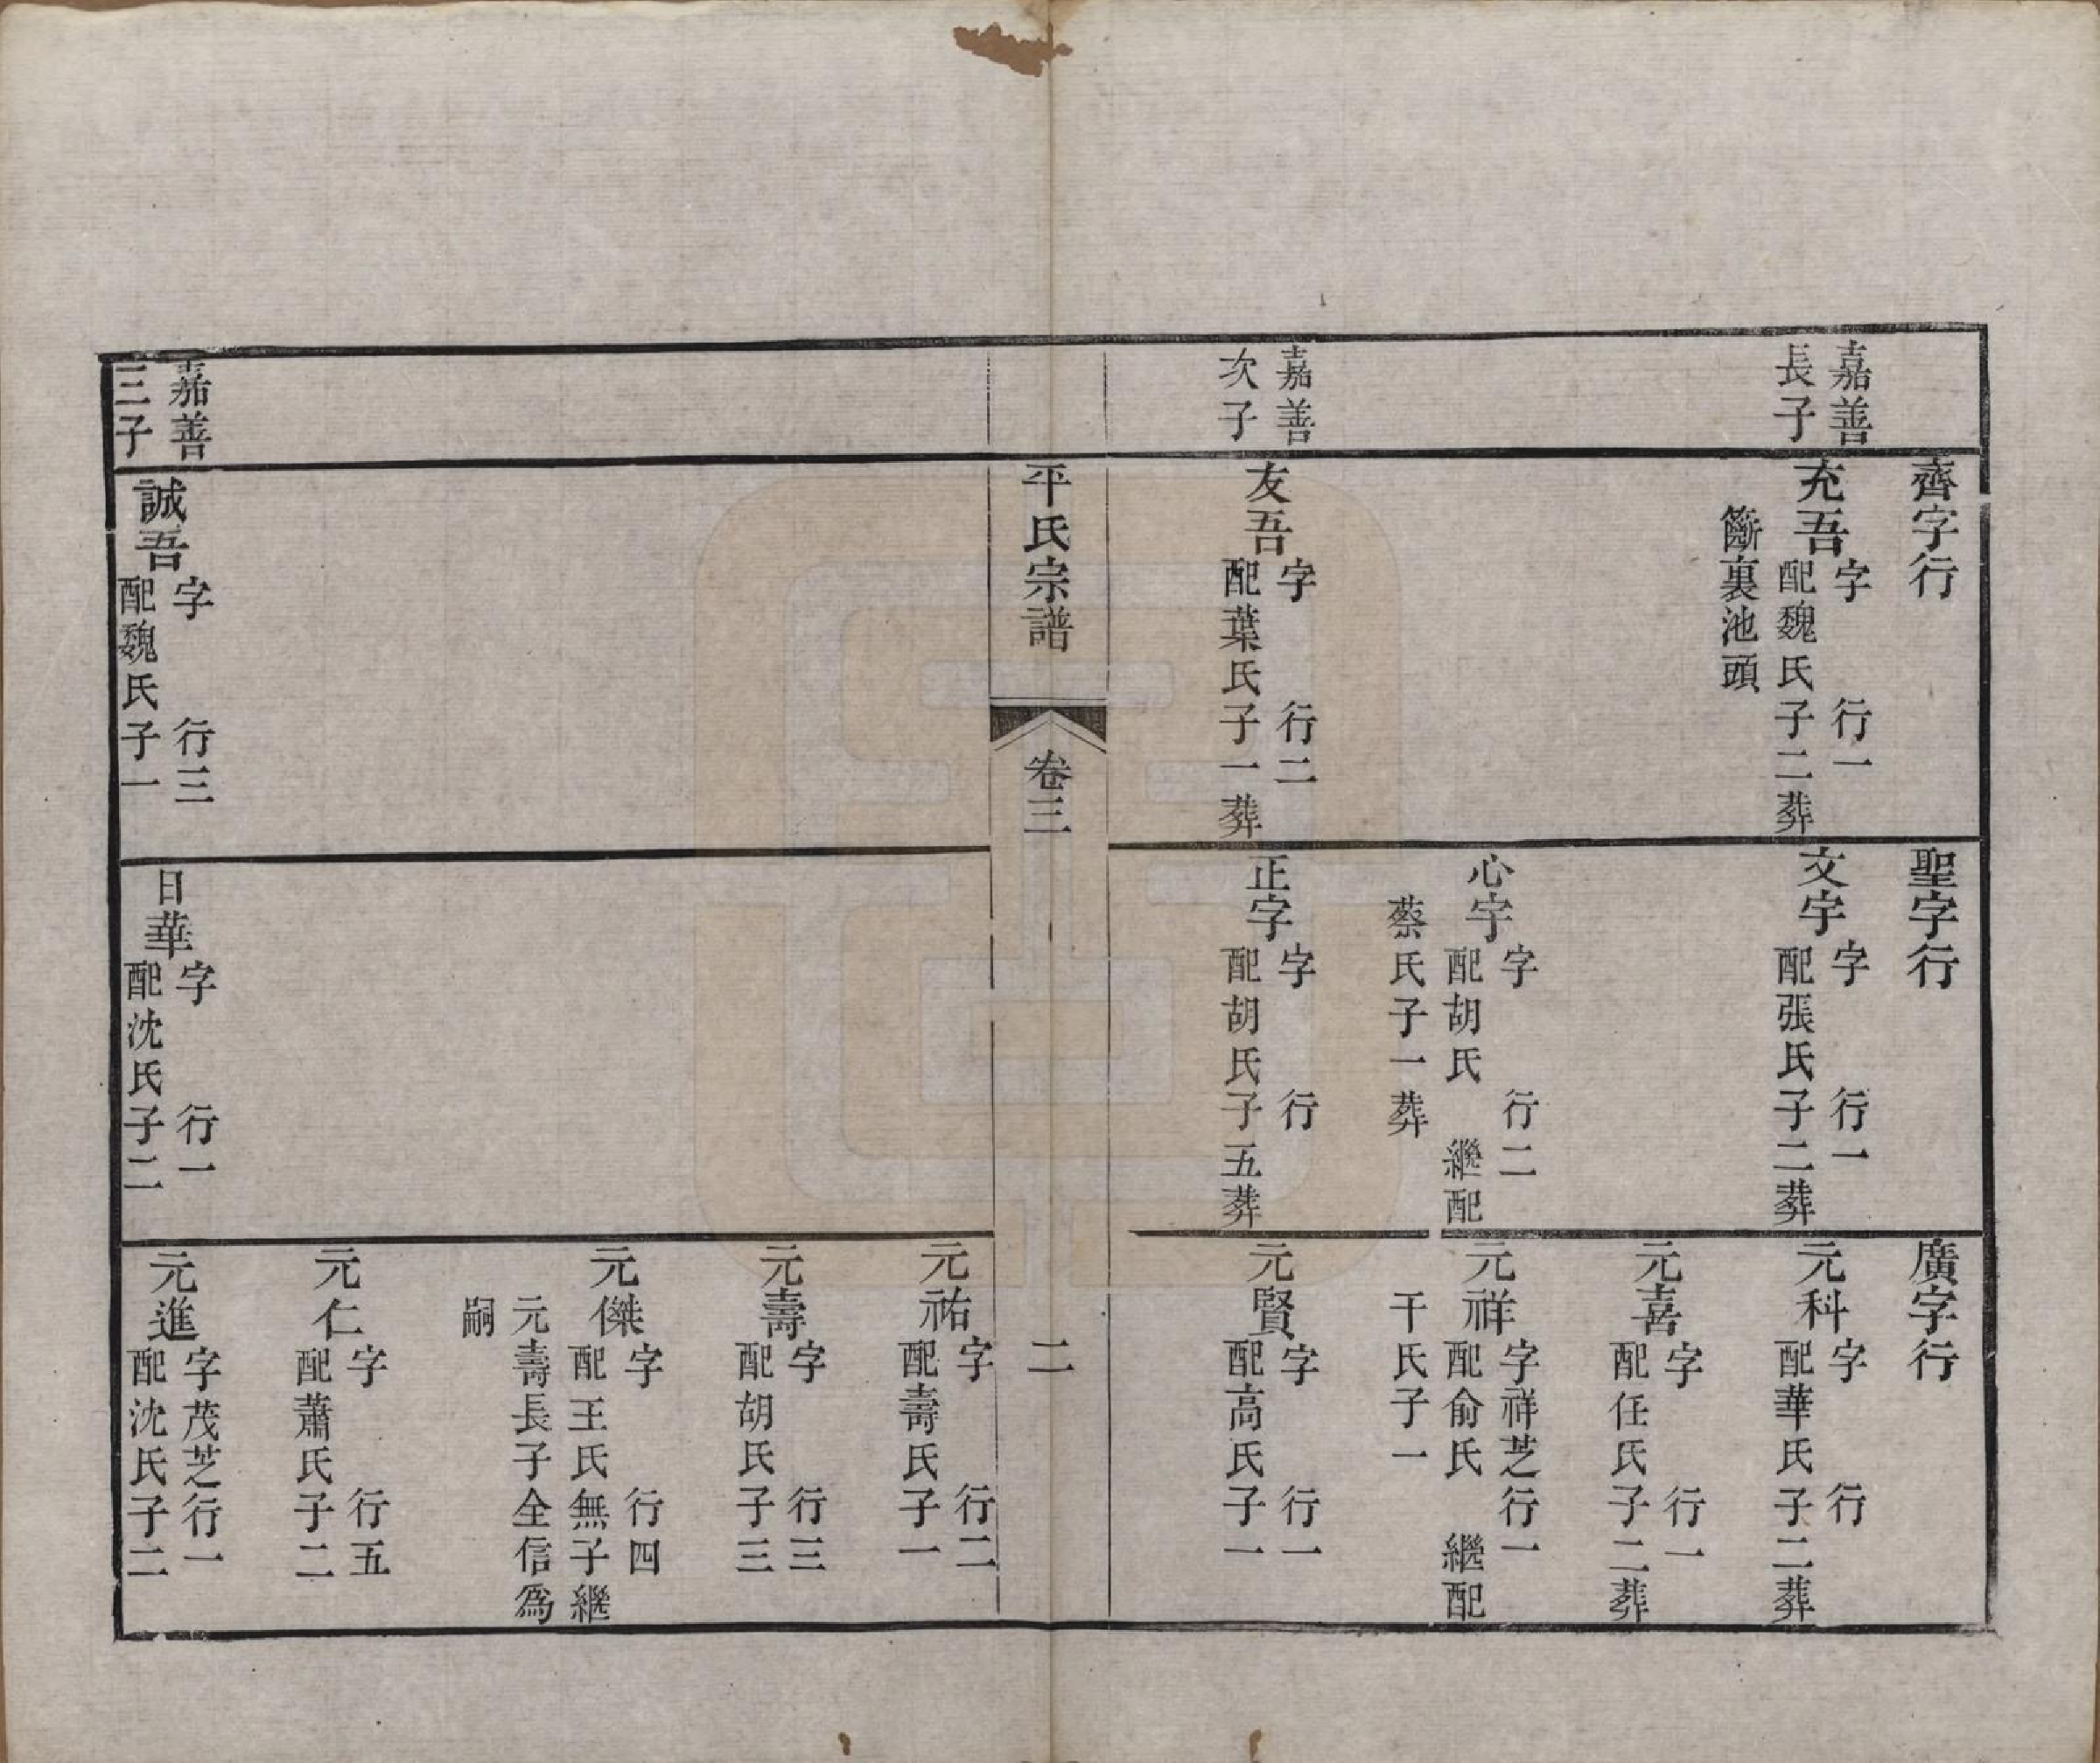 齊字行
聖字行
廣字行
嘉善
長子
充吾
字 行一
配魏氏子二葬
籪裏池頭
文宇
字 行一
配張氏子二葬
元科
字 行
配華氏子二葬
元喜
字 行一
配任氏子二葬
心宇
字 行二
配胡氏 繼配
蔡氏子一葬
元祥
字祥芝行一
配俞氏 繼配
干氏子一
嘉善
次子
友吾
字 行二
配葉氏子一葬
正字
字 行
配胡氏子五葬
元賢
字 行一
配高氏子一
平氏宗譜
卷三
二
元祐
字 行二
配壽氏子一
元壽
字 行三
配胡氏子三
元傑
字 行四
配王氏無子繼
元壽長子全信爲
嗣
元仁
字 行五
配蕭氏子二
嘉善
三子
誠吾
字 行三
配魏氏子一
日華
字 行一
配沈氏子二
元進
字茂芝行一
配沈氏子二